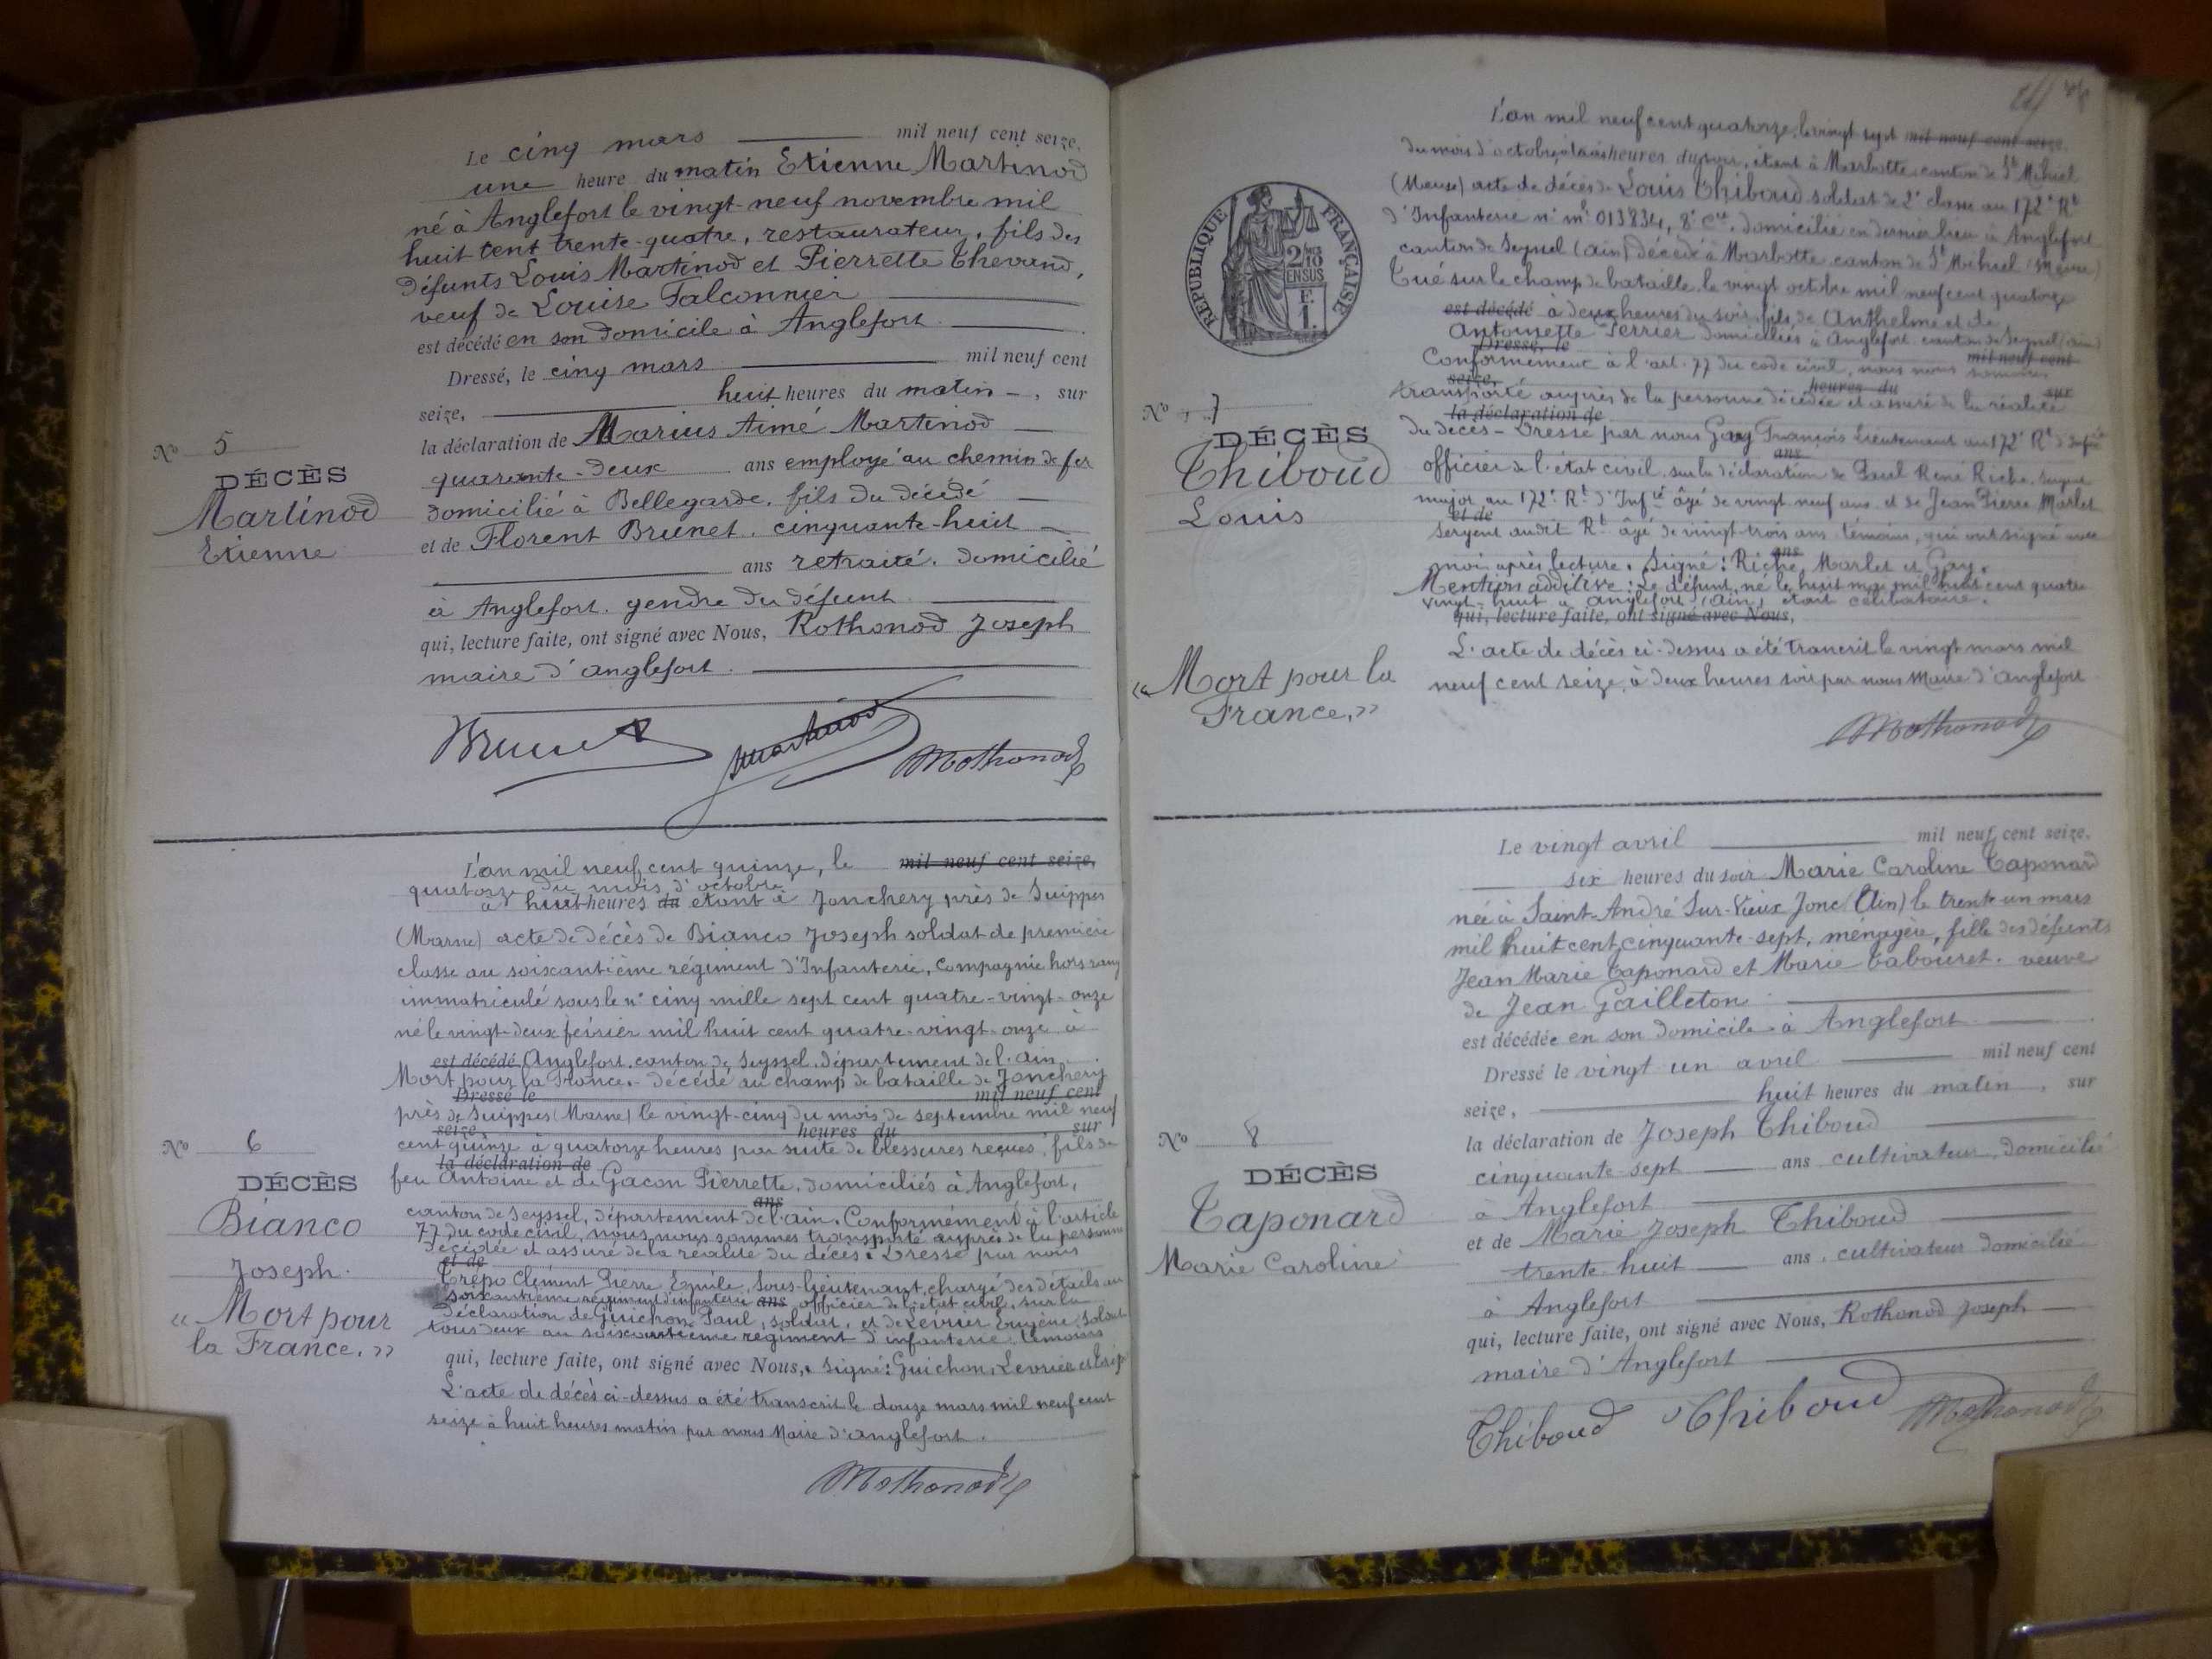 Le cinq mars mil neuf cent seize,
une heure du matin Etienne Martinod
né à Anglefort le vingt-neuf novembre mil
huit cent trente-quatre, restaurateur, fils des
défunts Louis Martinod et Pierrette Thevand,
veuf de Louise Falconnier
est décédé en son domicile à Anglefort.
Dressé, le cinq mars mil neuf cent
seize, huit heures du matin, sur
la déclaration de Marius Aimé Martinod
quarante-deux ans employé au chemin de fer
domicilié à Bellegarde, fils du décédé
et de Florent Brunet, cinquante-huit
ans retraité, domicilié
à Anglefort, gendre du défunt
qui, lecture faite, ont signé avec Nous, Rothonod Joseph
maire d'anglefort.
Nº 5
DÉCÈS
Martinod
Etienne
Brunet Martinod Rothonod
L'an mil neuf cent quinze, le mil neuf cent seize,
quatorze du mois d'octobre
à huit heures du etant à Jonchery près de Suippes
(Marne) acte de décès de Bianco Joseph soldat de première
classe au soixantième régiment d'Infanterie, Compagnie hors rang
immatriculé sous le n° cinq mille sept cent quatre-vingt-onze
né le vingt-deux février mil huit cent quatre-vingt-onze à
est décédé Anglefort, canton de Seyssel, département de l'ain.
Mort pour la France. - décédé au champ de bataille de Jonchery
Dressé le mil neuf cent
près de Suippes (Marne) le vingt-cinq du mois de septembre mil neuf
seize heures du sur
cent quinze à quatorze heures par suite de blessures reçues, fils de
la déclaration de
feu Antoine et de Gacon Pierrette, domiciliés à Anglefort,
ans
canton de Seyssel, département de l'ain. Conformément à l'article
77 du code civil, nous nous sommes transporté auprès de la personne
décédée et assuré de la réalité du décès. Dressé par nous
et de
Trépo Clément Pierre Emile, Sous-lieutenant, chargé des détails au
soixantième régiment d'infanterie ans officier de l'état civil, sur la
déclaration de Guichon Paul, soldat, et de Levrier Eugène, soldat
tous deux au soixantième régiment d'infanterie, témoins
qui, lecture faite, ont signé avec Nous,. Signé: Guichon, Levrier et
L'acte de décès ci-dessus a été transcrit le douze mars mil neuf cent
seize à huit heures matin par nous Maire d'anglefort.
Nº 6
DÉCÈS
Bianco
Joseph.
« Mort pour
la France. »
Rothonod
L'an mil neuf cent quatorze, le vingt sept mil neuf cent seize,
du mois d'octobre, à heures du soir, étant à Marbotte canton de St Mihiel
(Meuse) acte de décès de Louis Thiboud soldat de 2e classe au 172e Rt
d'Infanterie n° ml 013834, 8e Cie, domicilié en dernier lieu à Anglefort
canton de Seyssel (ain) décédé à Marbotte canton de St Mihiel (Meuse)
Tué sur le champ de bataille, le vingt octobre mil neuf cent quatorze
est décédé à deux heures du soir, fils de Anthelme et de
Antoinette Perrier domiciliés à Anglefort canton de Seyssel (ain)
Dressé, le mil neuf cent
Conformément à l'art. 77 du code civil, nous nous sommes
seize, heures du sur
transporté auprès de la personne décédée et assuré de la réalité
la déclaration de
du décès - Dressé par nous Gay François Lieutenant au 172e Rt d'Infie
ans
officier de l'état civil, sur la déclaration de Paul René Riche, sergent
major au 172e Rt d'Infie âgé de vingt neuf ans et de Jean Pierre Marlet
et de
Sergent audit Rt âgé de vingt-trois ans témoins, qui ont signé avec
ans
moi après lecture. Signé: Riche, Marlet et Gay.
Mention additive: Le défunt, né le huit mai mil huit cent quatre
vingt-huit à Anglefort (ain), était célibataire.
qui, lecture faite, ont signé avec Nous,
L'acte de décès ci-dessus a été trancrit le vingt mars mil
neuf cent seize, à deux heures soir par nous Maire d'Anglefort
RÉPUBLIQUE FRANÇAISE
Nº 7
DÉCÈS
Thiboud
Louis
« Mort pour la
France. »
Rothonod
Le vingt avril mil neuf cent seize,
six heures du soir Marie Caroline Taponard
née à Saint-André Sur-Vieux Jonc (Ain) le trente un mars
mil huit cent cinquante-sept, ménagère, fille des défunts
Jean Marie Taponard et Marie Tabouret, veuve
de Jean Gailleton
est décédée en son domicile à Anglefort
Dressé le vingt un avril mil neuf cent
seize, huit heures du matin, sur
la déclaration de Joseph Thiboud
cinquante-sept ans cultivateur, domicilié
à Anglefort
et de Marie Joseph Thiboud
trente-huit ans, cultivateur domicilié
à Anglefort
qui, lecture faite, ont signé avec Nous, Rothonod Joseph
maire d'Anglefort
Nº 8
DÉCÈS
Taponard
Marie Caroline
Thiboud Thiboud Rothonod